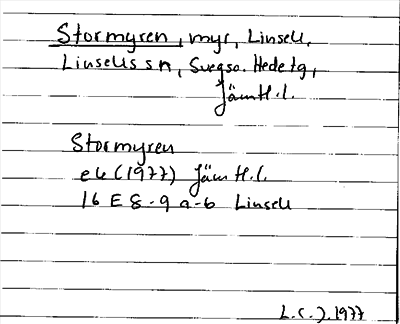 Stormyren, myr, Linsell,
Linsells sn, Svegso. Hede tg,
Jämtl.l.
Stormyren
ek (1977) Jämtl.l.
16 E 8-9 a-b Linsell
L.C.J. 1977